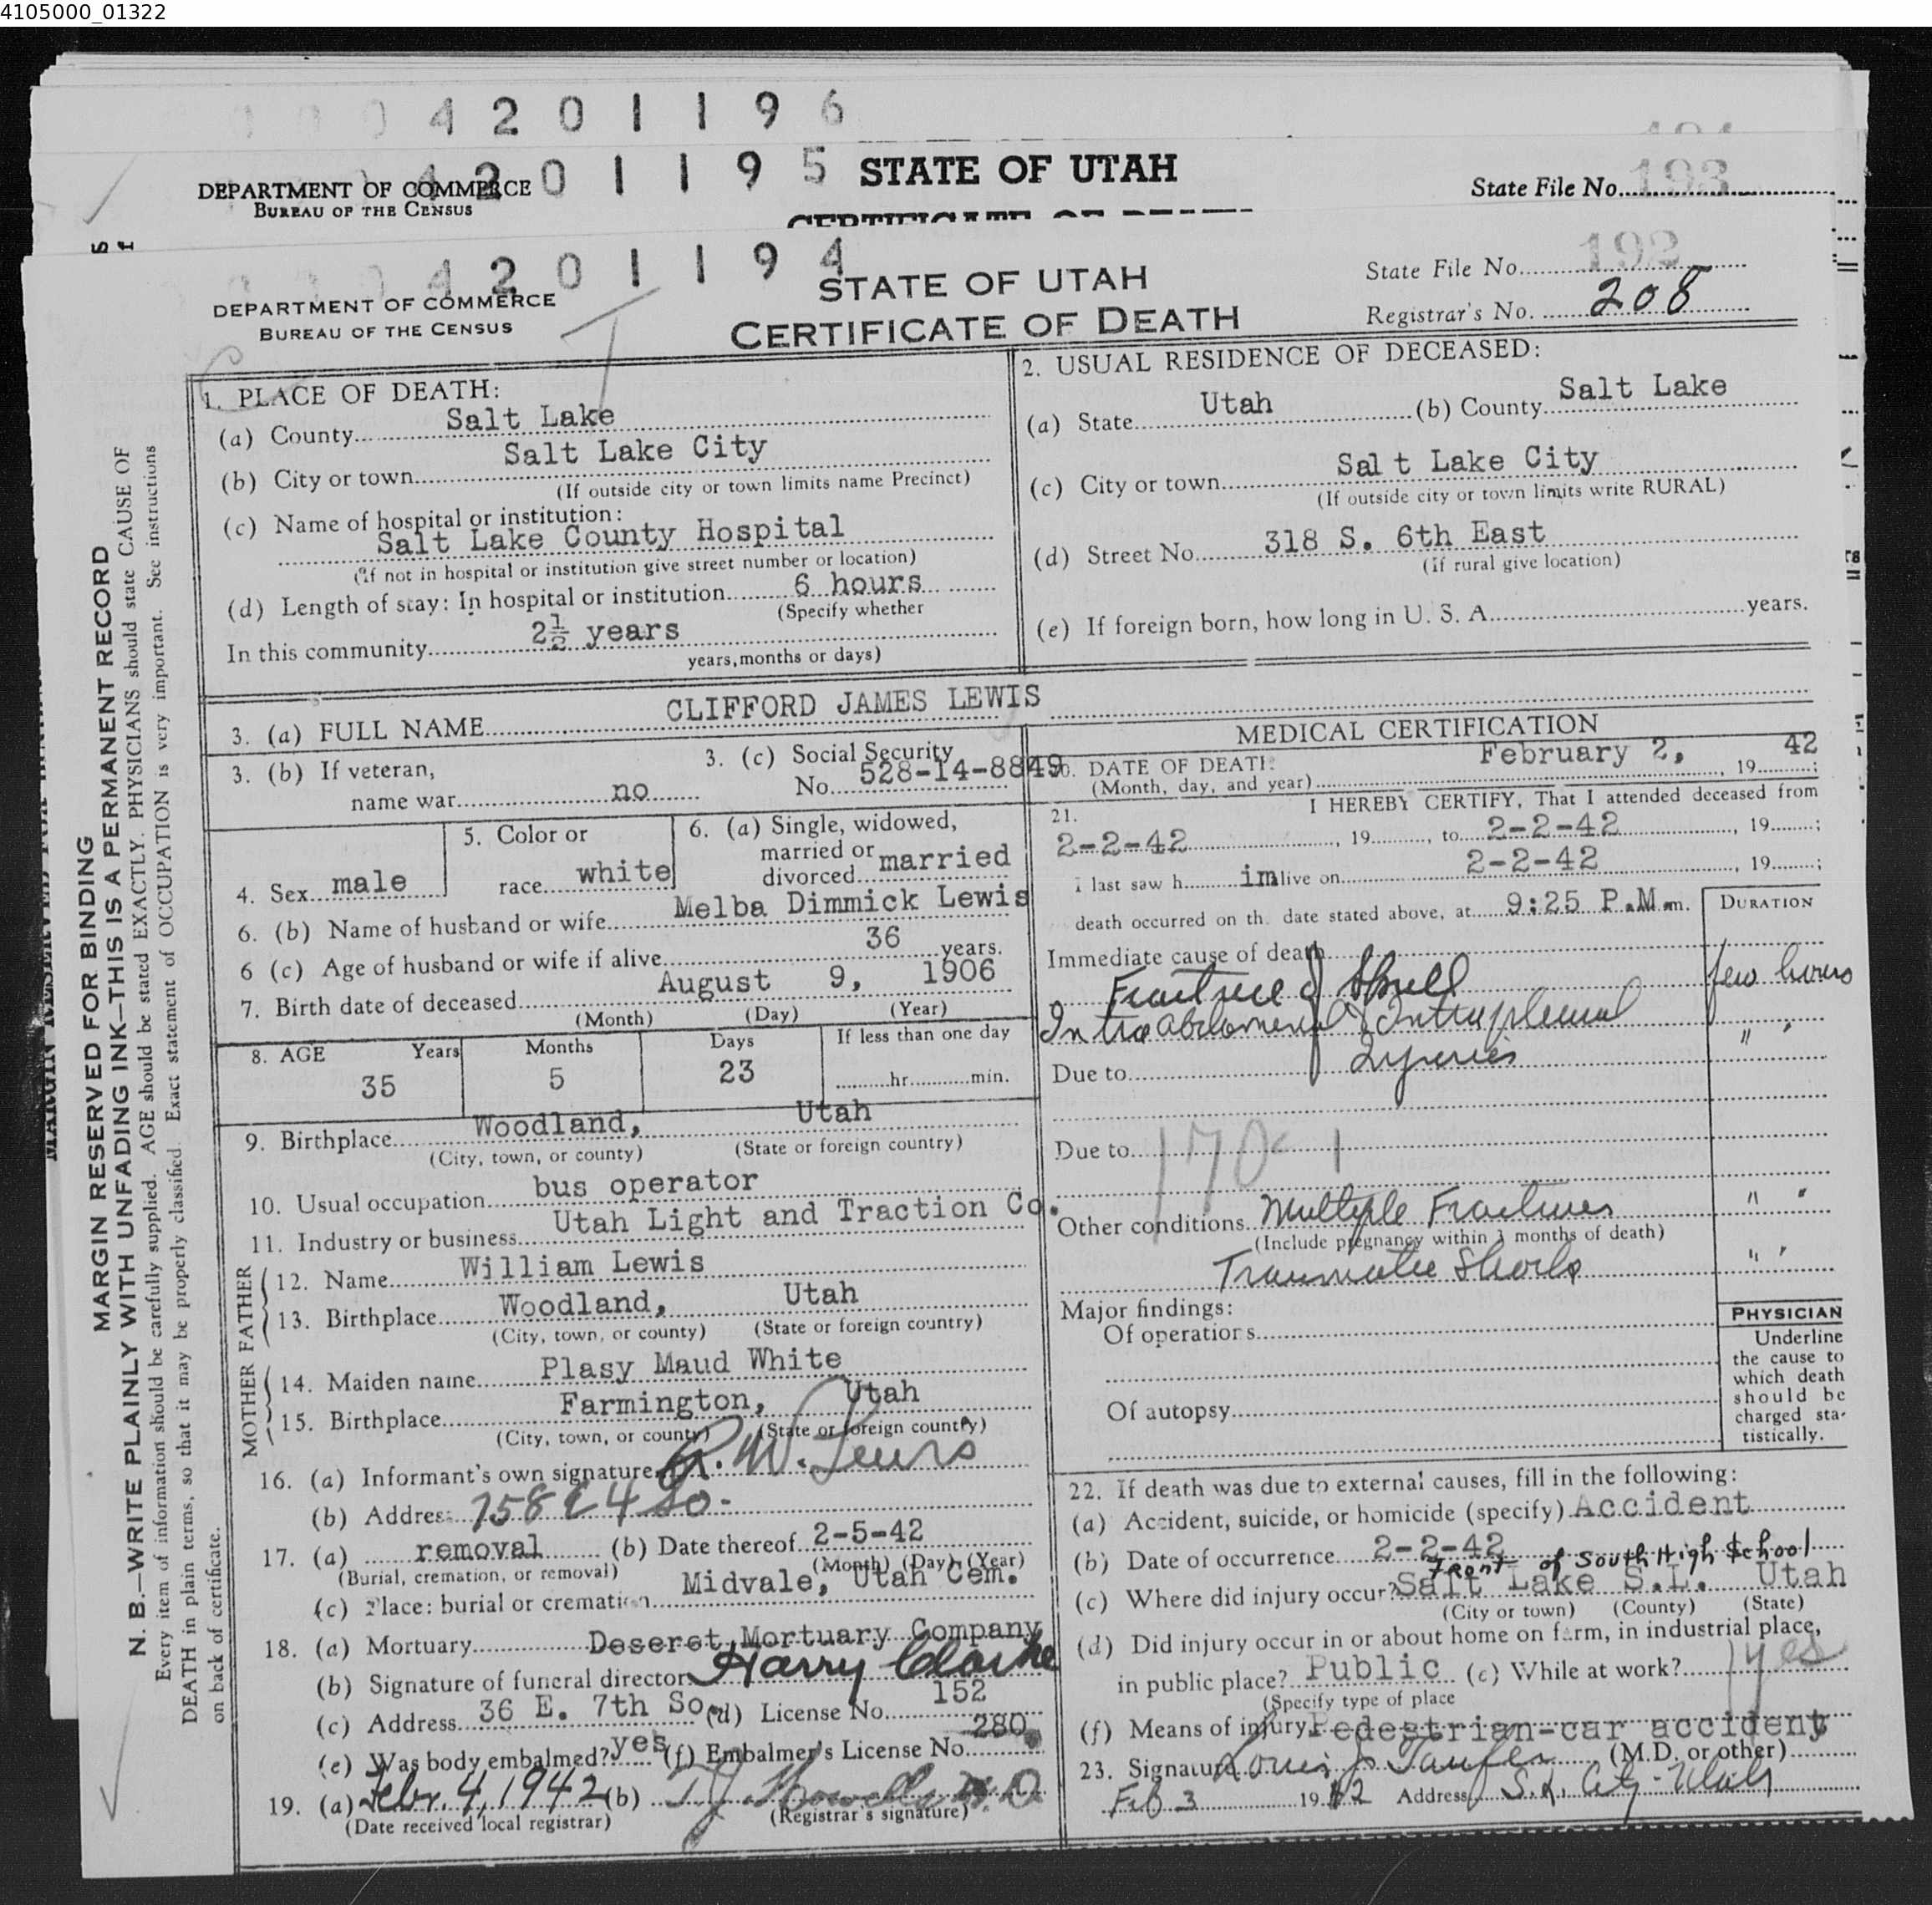 4105000_01322
4 2 0 1 1 9 6
4 2 0 1 1 9 5 STATE OF UTAH
DEPARTMENT OF COMMERCE
BUREAU OF THE CENSUS
State File No. 193
4 2 0 1 1 9 4
DEPARTMENT OF COMMERCE
BUREAU OF THE CENSUS
STATE OF UTAH
CERTIFICATE OF DEATH
State File No. 192
Registrar's No. 208
MARGIN RESERVED FOR BINDING
N. B.—WRITE PLAINLY WITH UNFADING INK—THIS IS A PERMANENT RECORD
Every item of information should be carefully supplied. AGE should be stated EXACTLY. PHYSICIANS should state CAUSE OF
DEATH in plain terms, so that it may be properly classified. Exact statement of OCCUPATION is very important. See instructions
on back of certificate.
1. PLACE OF DEATH:
(a) County Salt Lake
(b) City or town Salt Lake City
(If outside city or town limits name Precinct)
(c) Name of hospital or institution:
Salt Lake County Hospital
(If not in hospital or institution give street number or location)
(d) Length of stay: In hospital or institution 6 hours
(Specify whether
In this community 2½ years
years, months or days)
2. USUAL RESIDENCE OF DECEASED:
(a) State Utah (b) County Salt Lake
(c) City or town Salt Lake City
(If outside city or town limits write RURAL)
(d) Street No. 318 S. 6th East
(If rural give location)
(e) If foreign born, how long in U. S. A. years.
3. (a) FULL NAME CLIFFORD JAMES LEWIS
3. (b) If veteran,
name war no
3. (c) Social Security
No. 528-14-8849
4. Sex male
5. Color or
race white
6. (a) Single, widowed,
married or
divorced married
6. (b) Name of husband or wife Melba Dimmick Lewis
6 (c) Age of husband or wife if alive 36 years.
7. Birth date of deceased August 9, 1906
(Month) (Day) (Year)
8. AGE Years Months Days If less than one day
35 5 23 hr. min.
9. Birthplace Woodland, Utah
(City, town, or county) (State or foreign country)
10. Usual occupation bus operator
11. Industry or business Utah Light and Traction Co.
FATHER
12. Name William Lewis
13. Birthplace Woodland, Utah
(City, town, or county) (State or foreign country)
MOTHER
14. Maiden name Plasy Maud White
15. Birthplace Farmington, Utah
(City, town, or county) (State or foreign country)
16. (a) Informant's own signature R. W. Lewis
(b) Address 758 E 4 So.
17. (a) removal (b) Date thereof 2-5-42
(Burial, cremation, or removal) (Month) (Day) (Year)
(c) Place: burial or cremation Midvale, Utah Cem.
18. (a) Mortuary Deseret Mortuary Company
(b) Signature of funeral director Harry Clarke
(c) Address 36 E. 7th So. (d) License No. 152
(e) Was body embalmed? yes (f) Embalmer's License No. 280
19. (a) Febr. 4, 1942 (b) T J Howells M.D
(Date received local registrar) (Registrar's signature)
MEDICAL CERTIFICATION
20. DATE OF DEATH: February 2, 1942;
(Month, day, and year)
21. I HEREBY CERTIFY, That I attended deceased from
2-2-42, 19, to 2-2-42, 19;
I last saw h im alive on 2-2-42, 19;
death occurred on the date stated above, at 9:25 P.M. m.
DURATION
Immediate cause of death
Fracture of Skull few hours
Intraabdomenal & Intrapleural " "
Due to Injuries
Due to 170c 1
Other conditions Multiple Fractures " "
(Include pregnancy within 3 months of death)
Traumatic Shock " "
Major findings:
Of operations
Of autopsy
PHYSICIAN
Underline
the cause to
which death
should be
charged sta-
tistically.
22. If death was due to external causes, fill in the following:
(a) Accident, suicide, or homicide (specify) Accident
(b) Date of occurrence 2-2-42
Front of South High School
(c) Where did injury occur? Salt Lake S.L. Utah
(City or town) (County) (State)
(d) Did injury occur in or about home on farm, in industrial place,
in public place? Public (e) While at work? yes
(Specify type of place
(f) Means of injury Pedestrian-car accident
23. Signature Louis J Taufer (M.D. or other)
Feb 3 1942 Address S.L. City - Utah